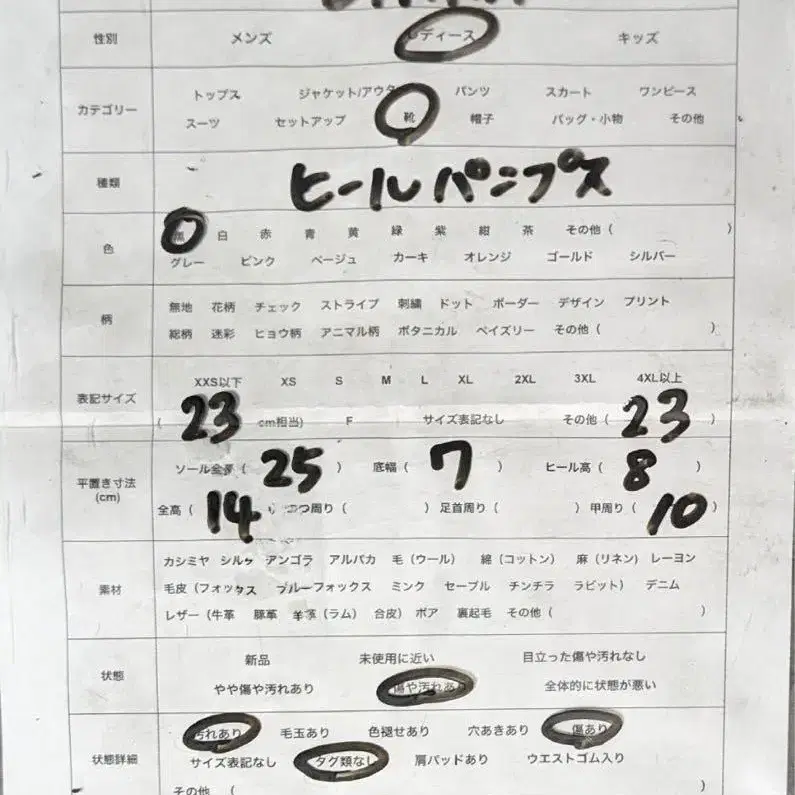 性別 メンズ レディース キッズ
カテゴリー
トップス ジャケット/アウター パンツ スカート ワンピース
スーツ セットアップ 靴 帽子 バッグ・小物 その他
種類 ヒールパンプス
色
黒 白 赤 青 黄 緑 紫 紺 茶 その他 ( )
グレー ピンク ベージュ カーキ オレンジ ゴールド シルバー
柄
無地 花柄 チェック ストライプ 刺繍 ドット ボーダー デザイン プリント
総柄 迷彩 ヒョウ柄 アニマル柄 ボタニカル ペイズリー その他 ( )
表記サイズ
XXS以下 XS S M L XL 2XL 3XL 4XL以上
( 23 cm相当) F サイズ表記なし その他 ( 23 )
平置き寸法
(cm)
ソール全長 ( 25 ) 底幅 ( 7 ) ヒール高 ( 8 )
全高 ( 14 ) つつ周り ( ) 足首周り ( ) 甲周り ( 10 )
素材
カシミヤ シルク アンゴラ アルパカ 毛 (ウール) 綿 (コットン) 麻 (リネン) レーヨン
毛皮 (フォックス ブルーフォックス ミンク セーブル チンチラ ラビット) デニム
レザー (牛革 豚革 羊革 (ラム) 合皮) ボア 裏起毛 その他 ( )
状態
新品 未使用に近い 目立った傷や汚れなし
やや傷や汚れあり 傷や汚れあり 全体的に状態が悪い
状態詳細
汚れあり 毛玉あり 色褪せあり 穴あきあり 傷あり
サイズ表記なし タグ類なし 肩パッドあり ウエストゴム入り
その他 ( )